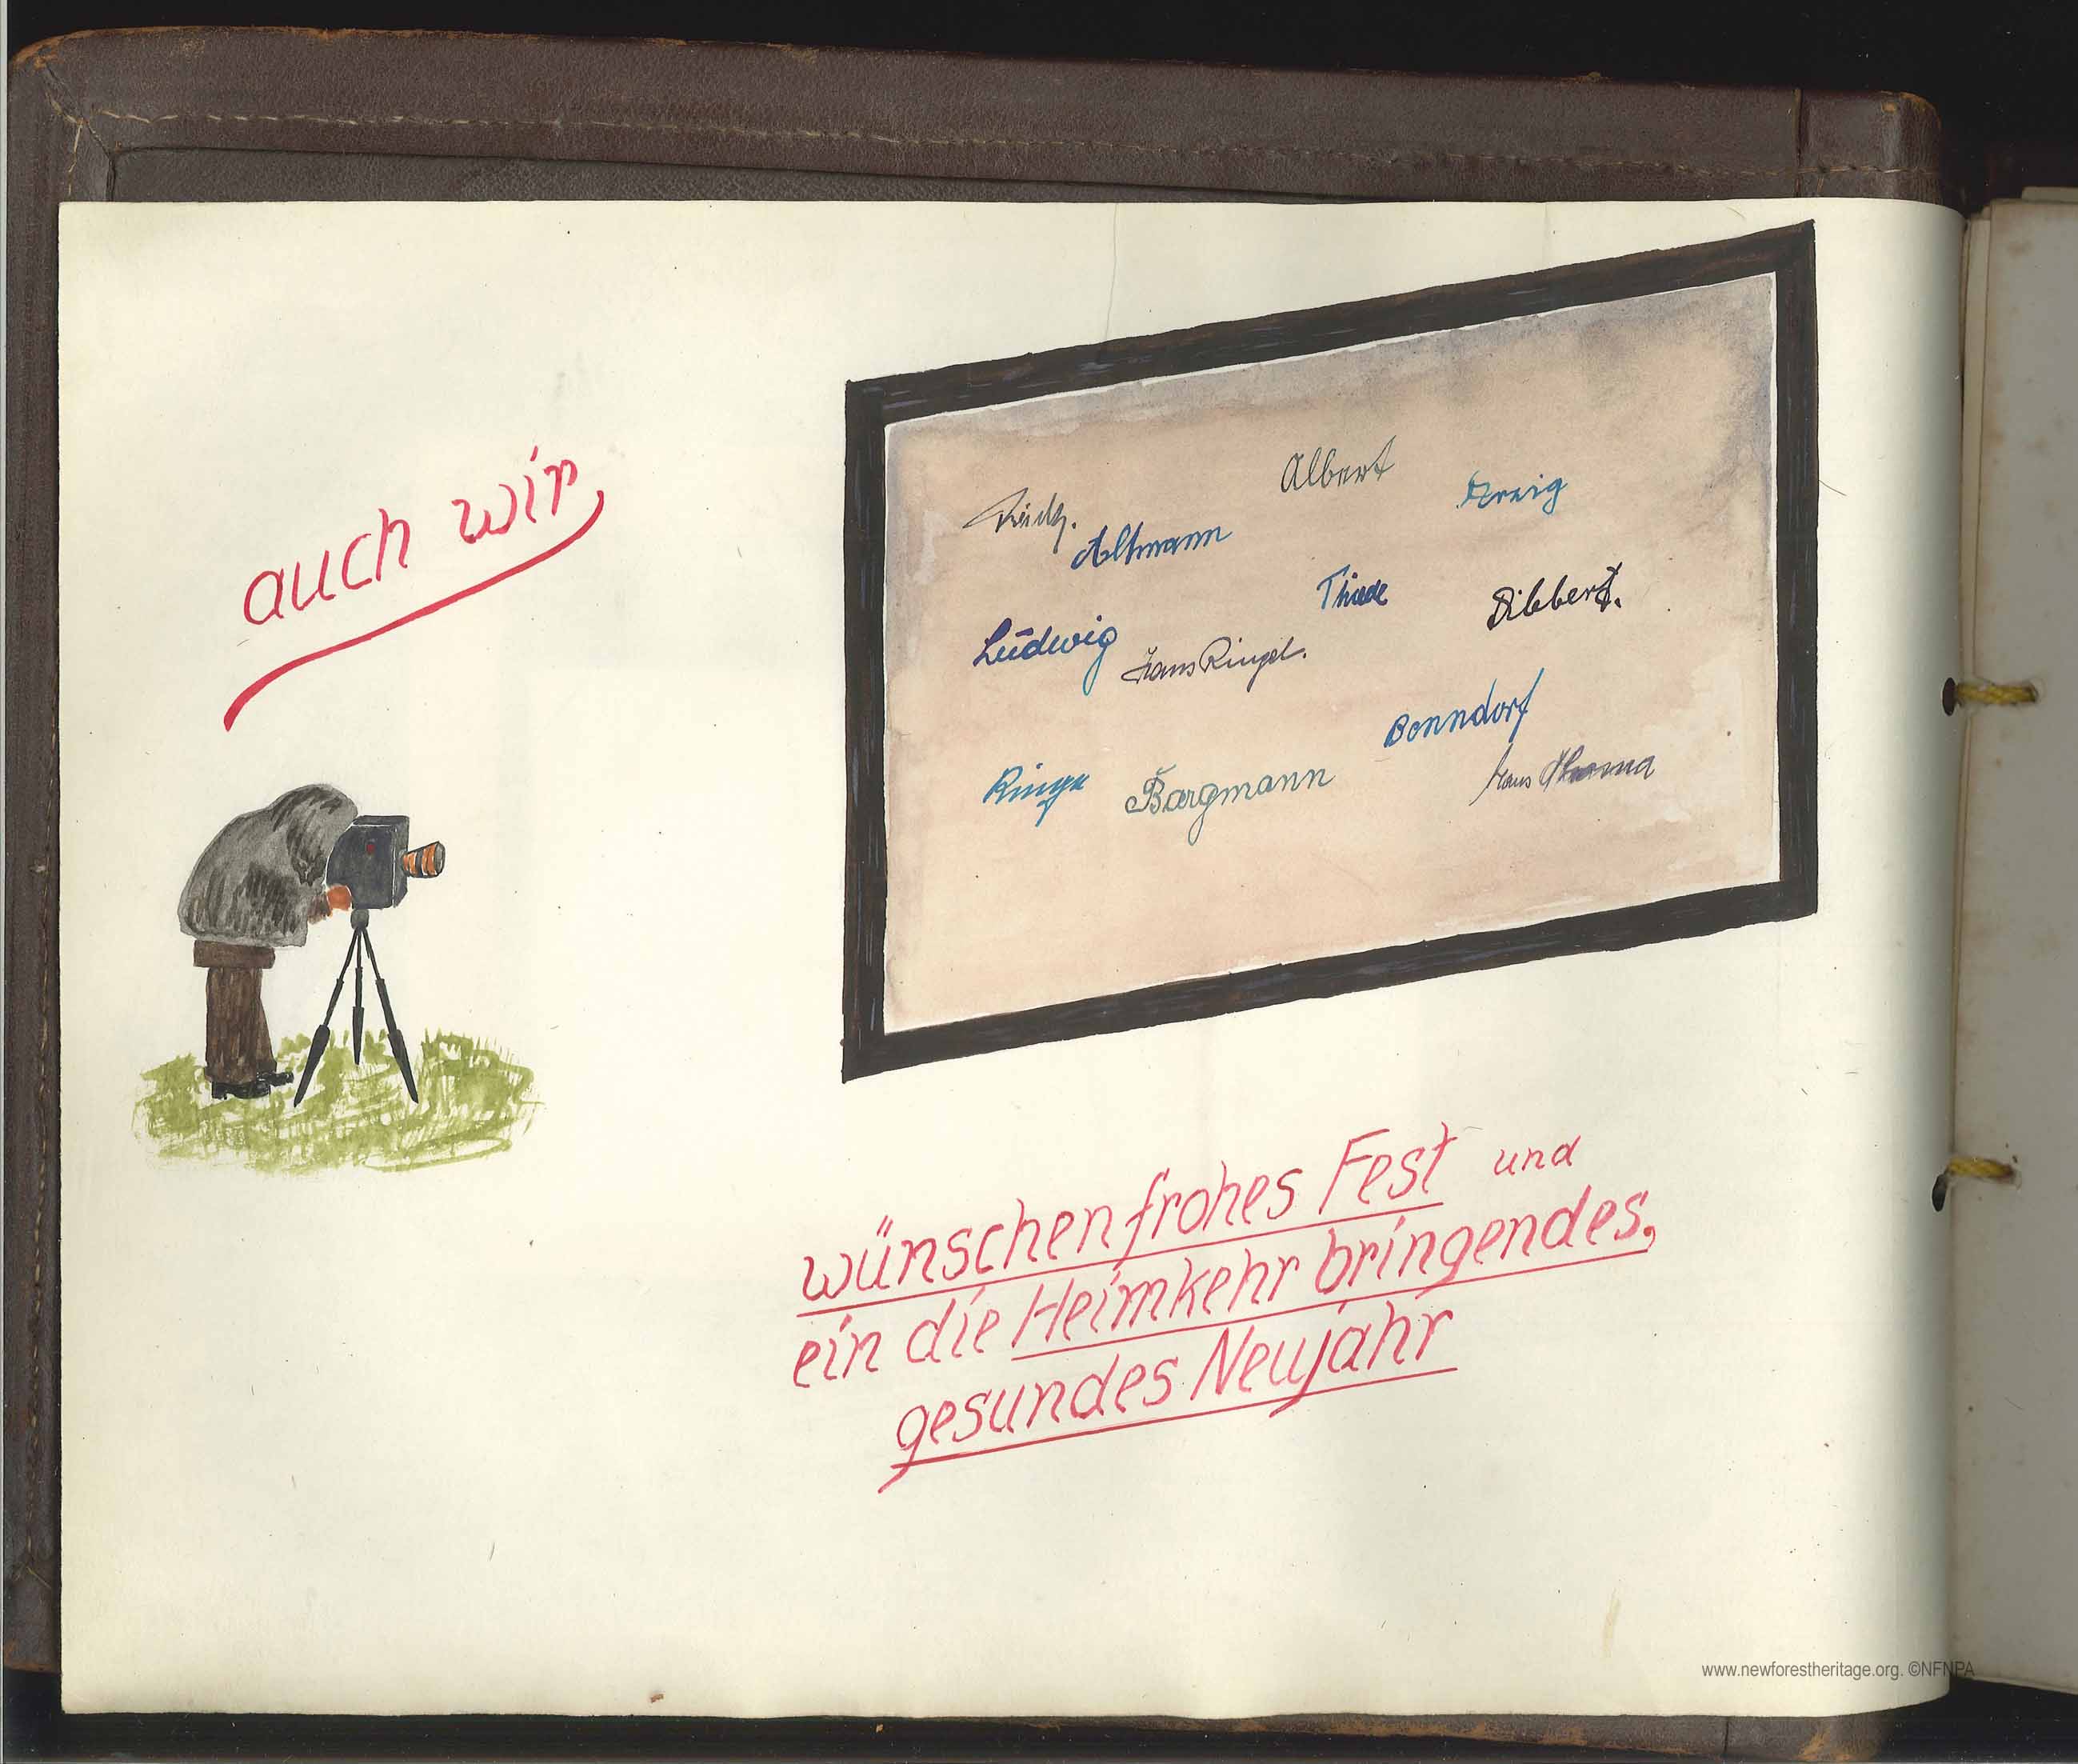 auch wir
Albert
Altmann
Thiede
Dibbert.
Ludwig
Hans Ringel.
Bonndorf
Bargmann
Hans
wünschen frohes Fest und
ein die Heimkehr bringendes,
gesundes Neujahr
www.newforestheritage.org. ©NFNPA